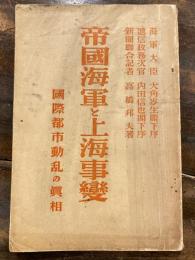 海軍大臣 大角岑生閣下序
遞信政務次官 内田信也閣下序
新聞聯合記者 高橋邦夫著
帝國海軍と上海事變
國際都市動乱の眞相